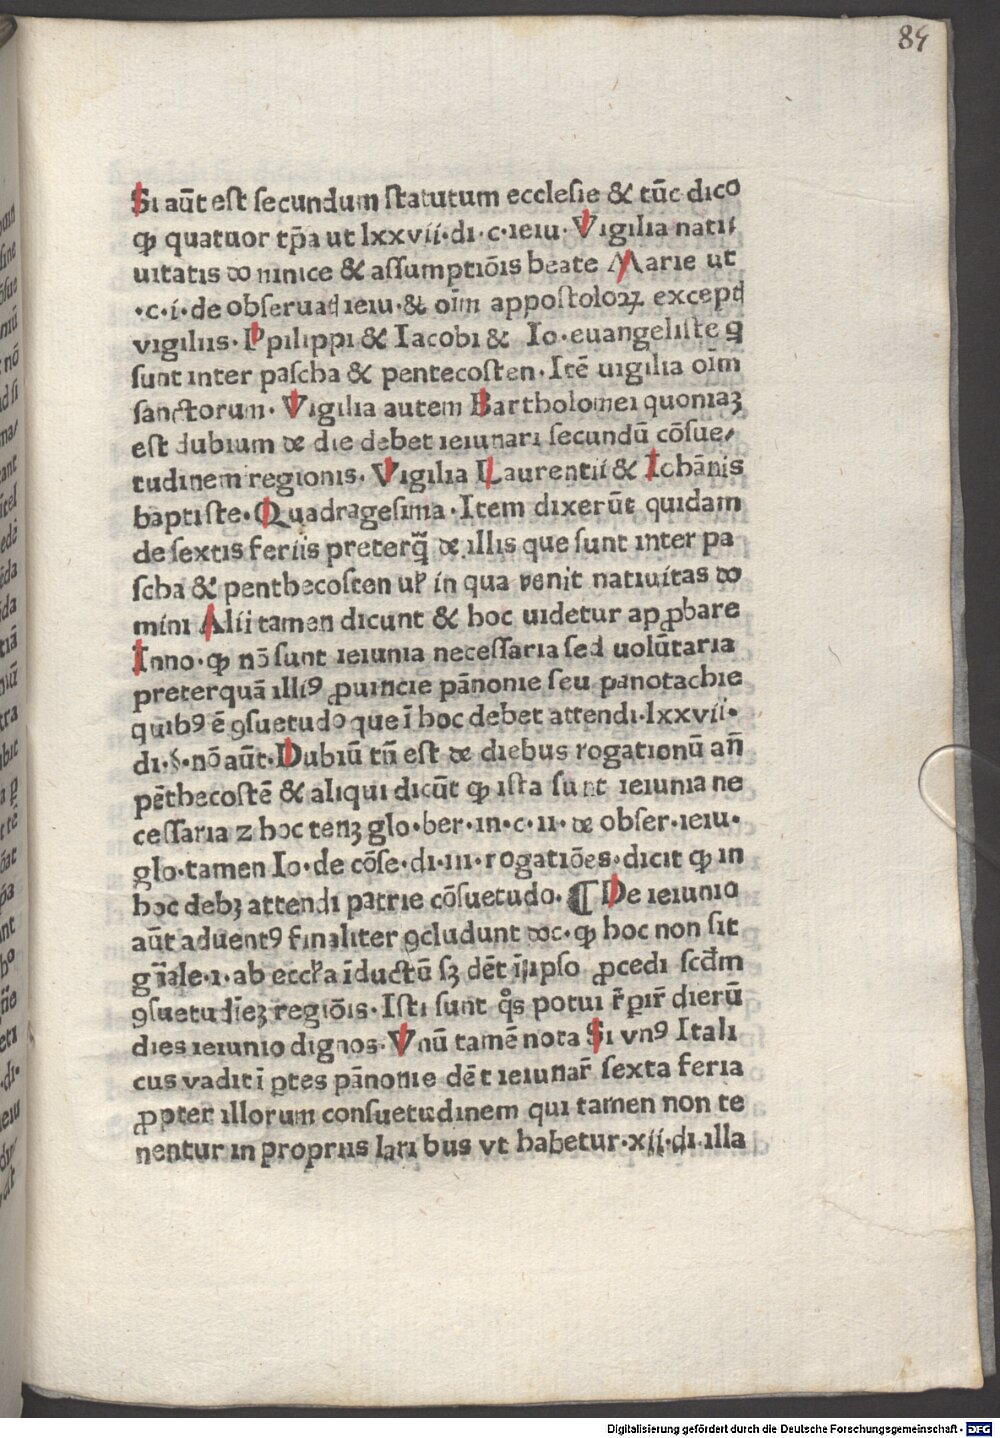 84
Si aūt est secundum statutum ecclesie & tūc dico
ꝙ quatuor tp̄a ut lxxvii·di·c·ieiu·Vigilia nati/
uitatis dominice & assumptiōis beate Marie ut
·c·i·de obseruat ieiu·& oīm appostoloꝝ except
vigiliis·Ppilippi & Iacobi & Io·euangeliste q
sunt inter pascha & pentecosten·Itē uigilia oīm
sanctorum·Vigilia autem Bartholomei quoniaꝫ
est dubium de die debet ieiunari secundū cōsue/
tudinem regionis·Vigilia Laurentii & Iohānis
baptiste·Quadragesima·Item dixerūt quidam
de sextis feriis preterq̄ de illis que sunt inter pa
scha & penthecosten ul' in qua venit natiuitas do
mini Alii tamen dicunt & hoc uidetur apꝓbare
Inno·ꝙ nō sunt ieiunia necessaria sed uolūtaria
preterquā illiꝰ ꝓuincie pānonie seu panotachie
quibꝰ ē ꝯsuetudo que ī hoc debet attendi·lxxvii·
di·§·nō aūt·Dubiū tn̄ est de diebus rogationū an̄
pēthecostē & aliqui dicūt ꝙ ista sunt ieiunia ne
cessaria z hoc tenꝫ glo·ber·in·c·ii·de obser·ieiu·
glo·tamen Io·de cōse·di·iii·rogatiōes·dicit ꝙ in
hoc debꝫ attendi patrie cōsuetudo.¶ De ieiunio
aūt aduentꝰ finaliter ꝯcludunt doc·ꝙ hoc non sit
gn̄ale·i·ab eccl'a īductū sꝫ dēt īipso ꝓcedi scd̄m
ꝯsuetudīeꝫ regiōis·Isti sunt qͦs potui r̄ꝑir̄ dierū
dies ieiunio dignos·Vnū tamē nota Si vnꝰ Itali
cus vadit ī ꝑtes pānonie dēt ieiunar̄ sexta feria
ꝓpter illorum consuetudinem qui tamen non te
nentur in propriis laribus vt habetur·xii·di·illa
Digitalisierung gefördert durch die Deutsche Forschungsgemeinschaft - DFG